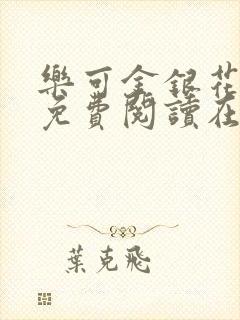 樂可金銀花
免費閱讀在
葉克飛